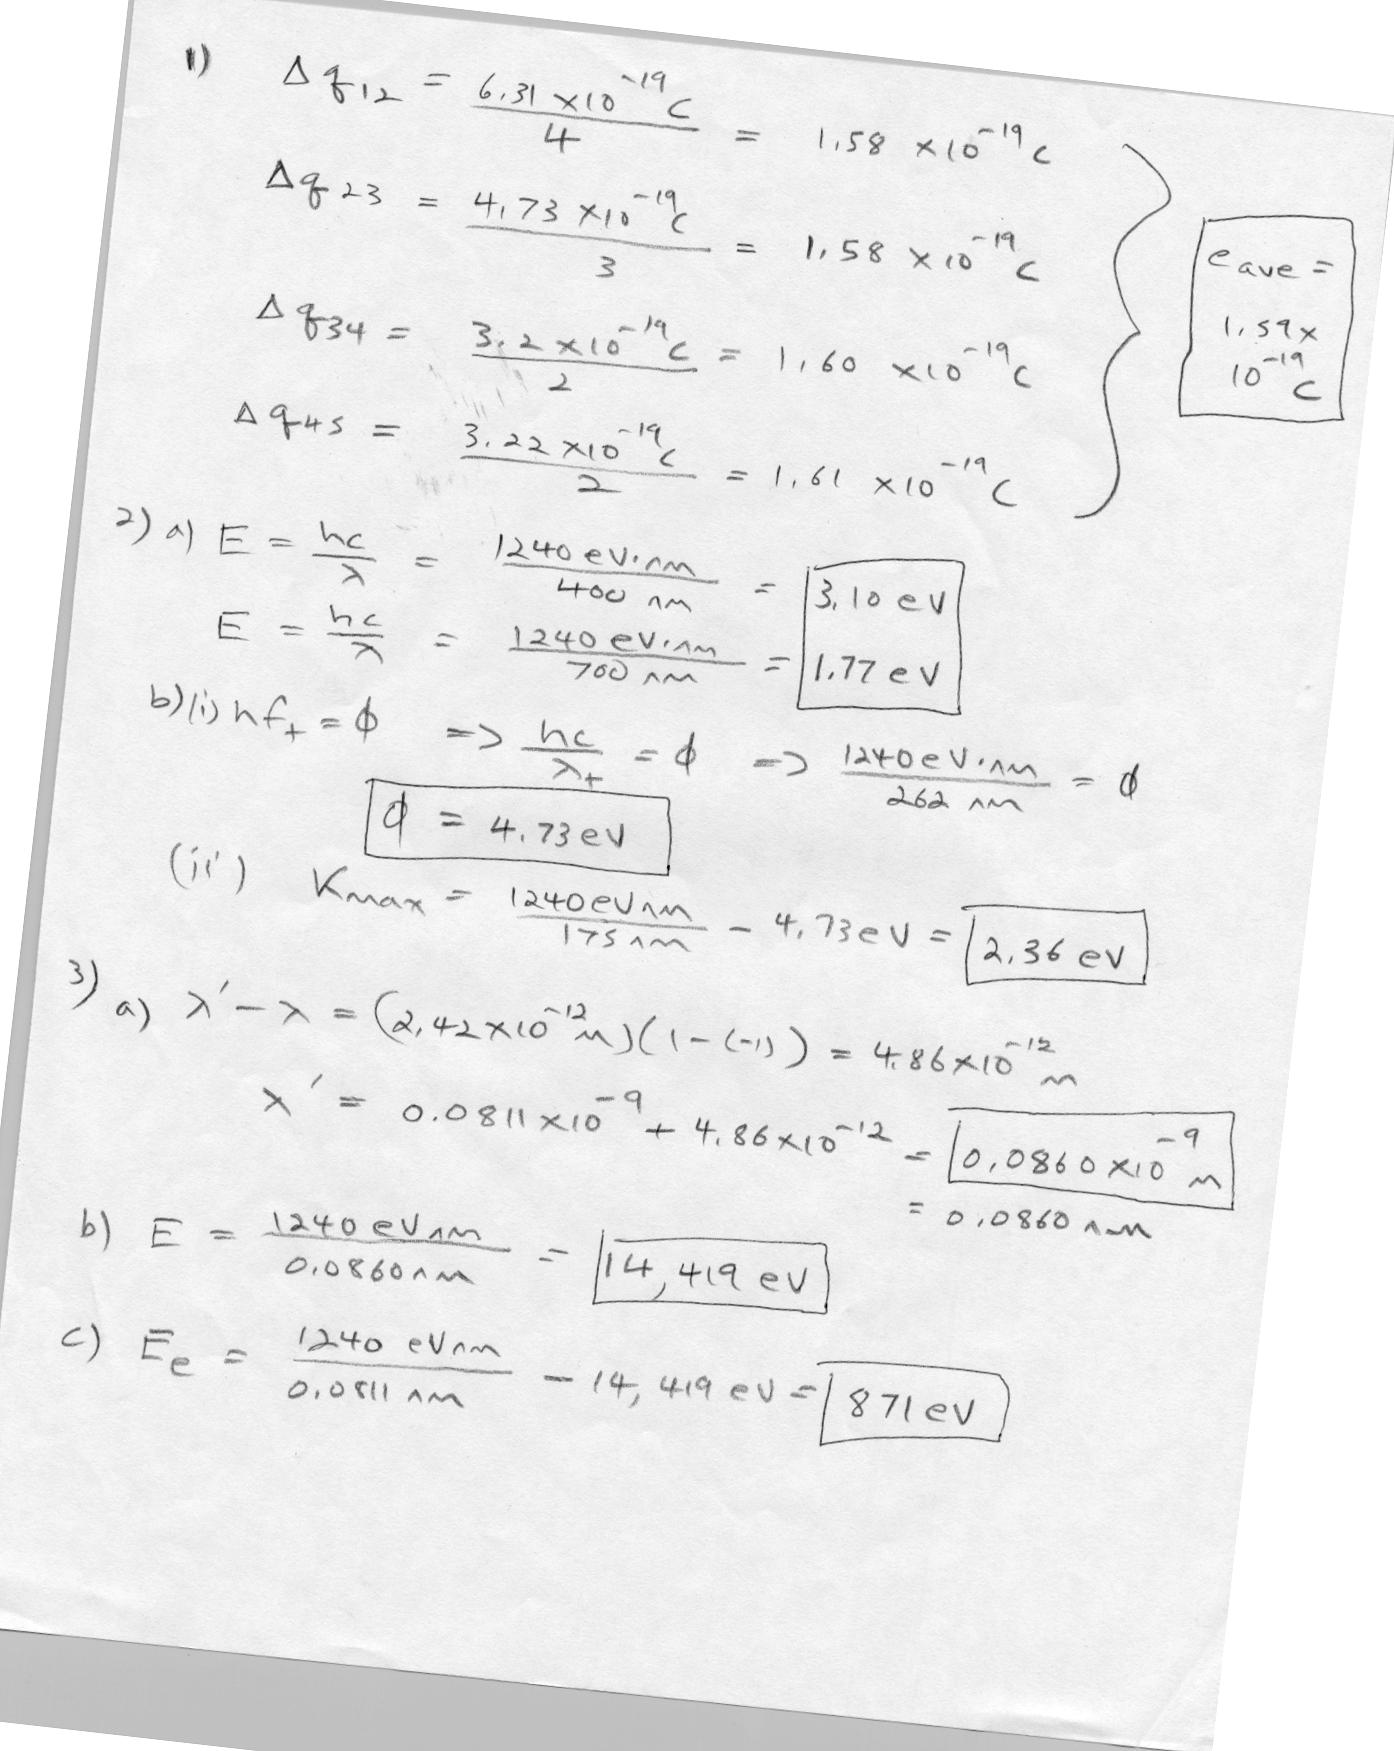 1) Δq12 = 6.31 x10^-19 C / 4 = 1.58 x10^-19 C
Δq23 = 4.73 x10^-19 C / 3 = 1.58 x10^-19 C
e ave = 1.59 x 10^-19 C
Δq34 = 3.2 x10^-19 C / 2 = 1.60 x10^-19 C
Δq45 = 3.22 x10^-19 C / 2 = 1.61 x10^-19 C
2) a) E = hc / λ = 1240 eV·nm / 400 nm = 3.10 eV
E = hc / λ = 1240 eV·nm / 700 nm = 1.77 eV
b) (i) hf_t = φ => hc / λ_t = φ => 1240 eV·nm / 262 nm = φ
φ = 4.73 eV
(ii) Kmax = 1240 eV nm / 175 nm - 4.73 eV = 2.36 eV
3) a) λ' - λ = (2.42 x10^-12 m)(1-(-1)) = 4.86 x10^-12 m
λ' = 0.0811 x10^-9 + 4.86 x10^-12 = 0.0860 x10^-9 m
= 0.0860 nm
b) E = 1240 eV nm / 0.0860 nm = 14,419 eV
c) Ee = 1240 eV nm / 0.0811 nm - 14,419 eV = 871 eV